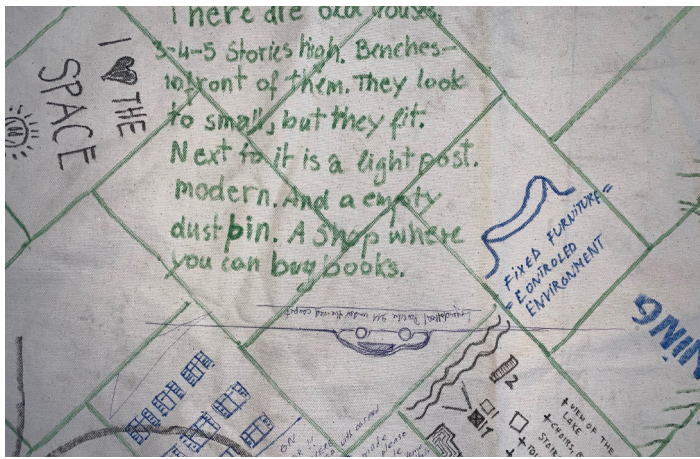 There are old houses.
3-4-5 Stories high. Benches-
infront of them. They look
to small, but they fit.
Next to it is a light post.
modern. And a empty
dustbin. A Shop where
you can buy books.
I ♥ THE
SPACE
FIXED FURNITURE=
=CONTROLED
ENVIRONMENT
NING
2
17
+ VIEW OF THE
LAKE
+ CHAIRS,
STAIR
ON
please